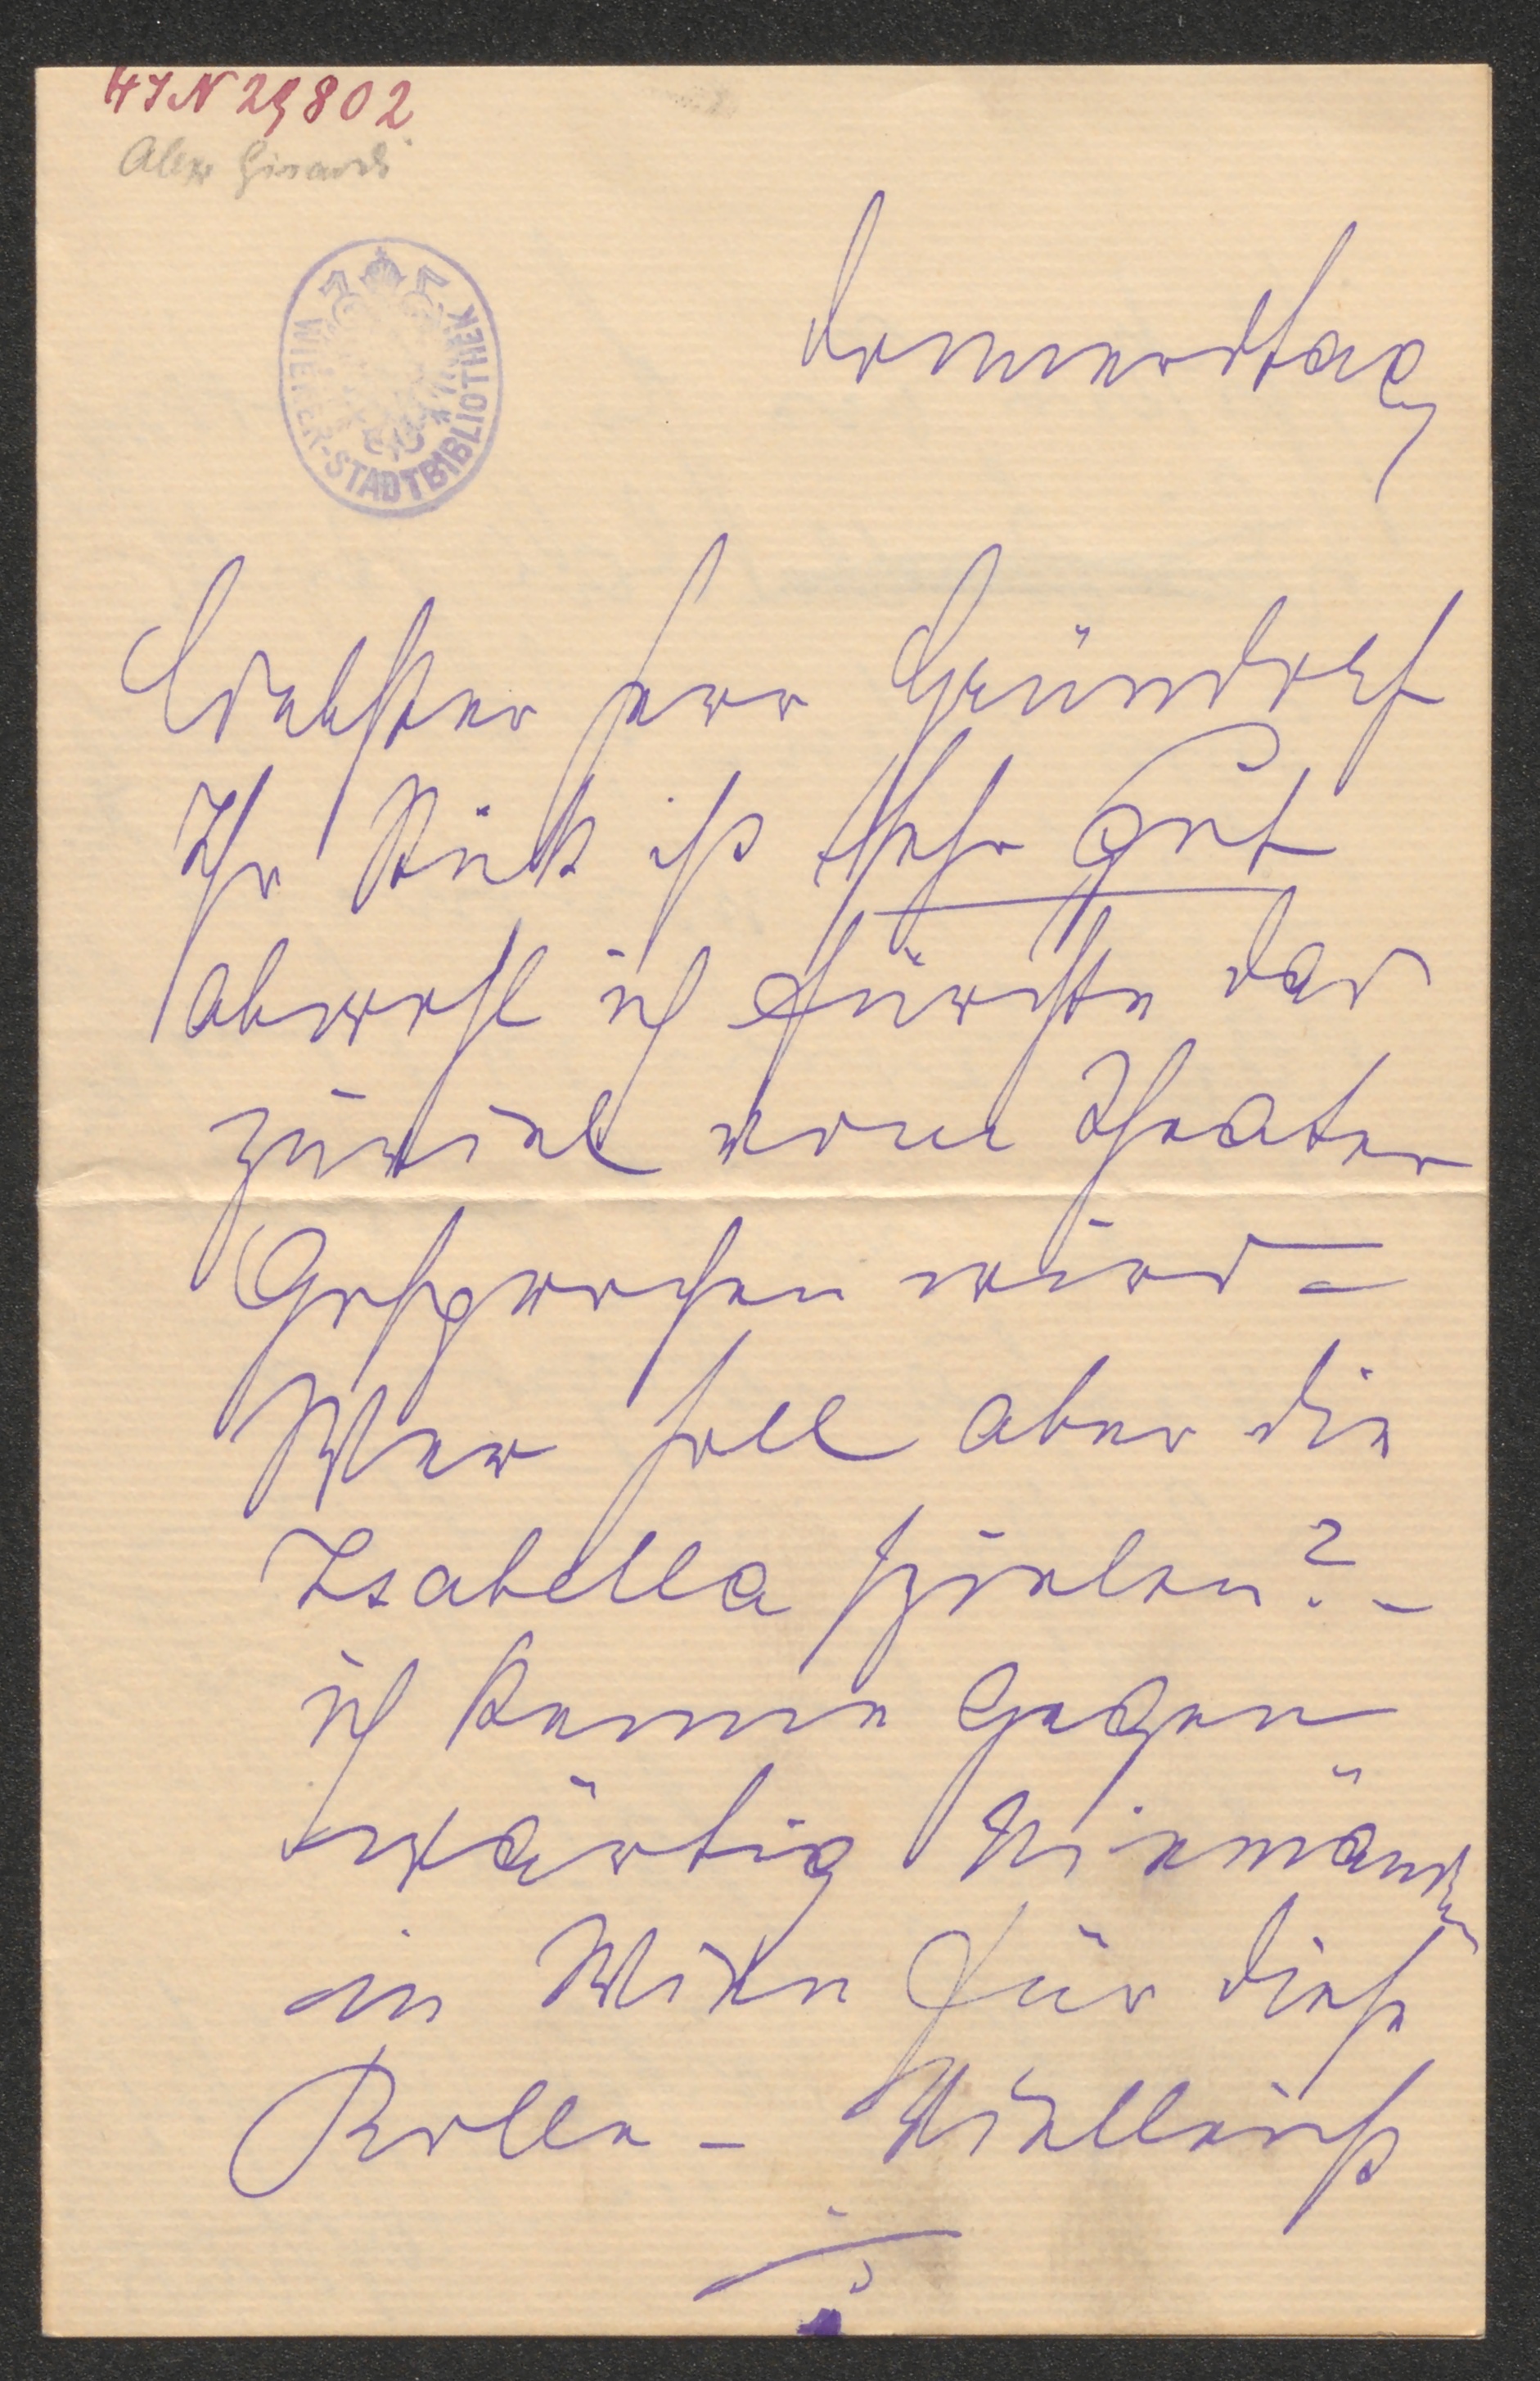 HIN 29802
Alex Girardi
WIENER-STADTBIBLIOTHEK
Donnerstag
Liebster Herr Gründorf
Ihr Stück ist sehr gut
obwohl ich fürchte das
zuviel vom Theater
Gesprochen wird –
Wer soll aber die
Isabella spielen? –
ich kenne Gegen
wärtig Niemanden
in Wien für diese
Rolle – Vielleicht